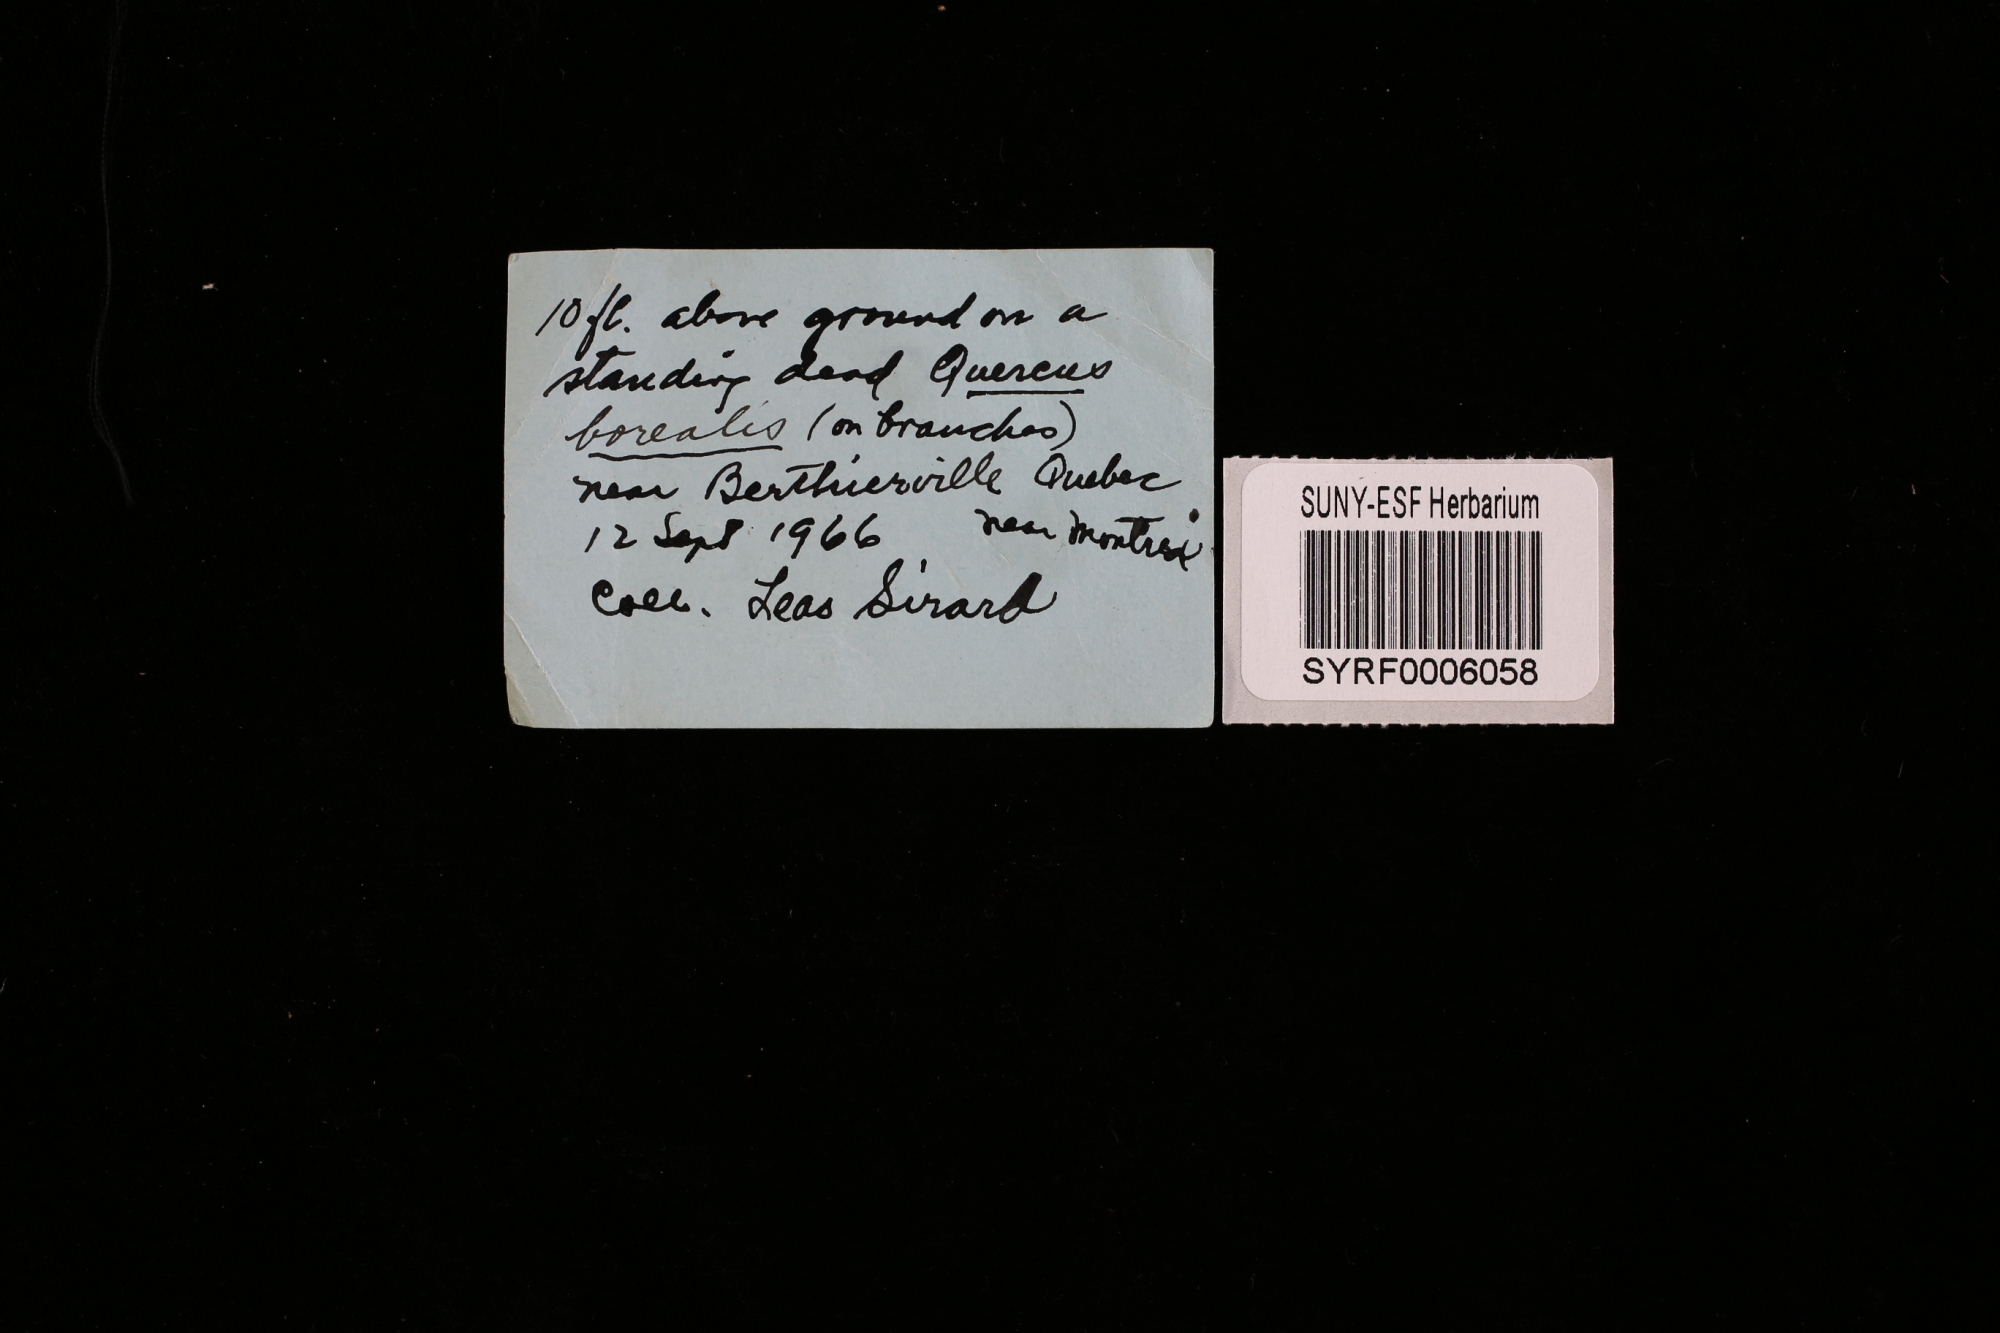 10 ft. above ground on a
standing dead Quercus
borealis (on branches)
near Berthierville Quebec
12 Sept 1966 near Montreal
Coll. Leas Sirard
SUNY-ESF Herbarium
SYRF0006058